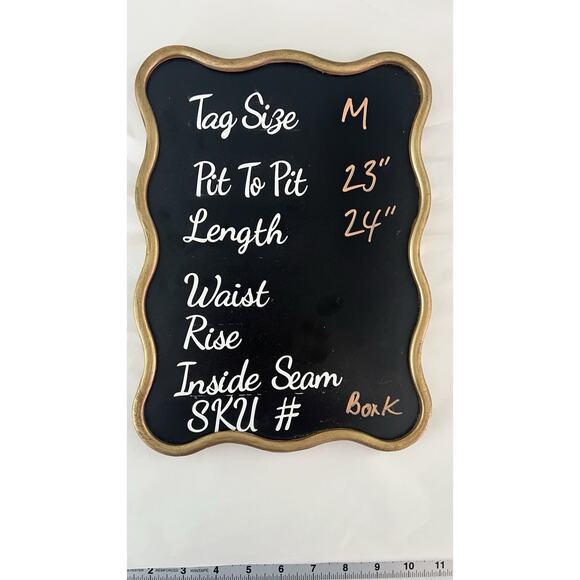 Tag Size M
Pit To Pit 23"
Length 24"
Waist
Rise
Inside Seam
SKU # Box K
2 REINFORCED 3 WINTAPE 4 5 6 7 8 9 10 11